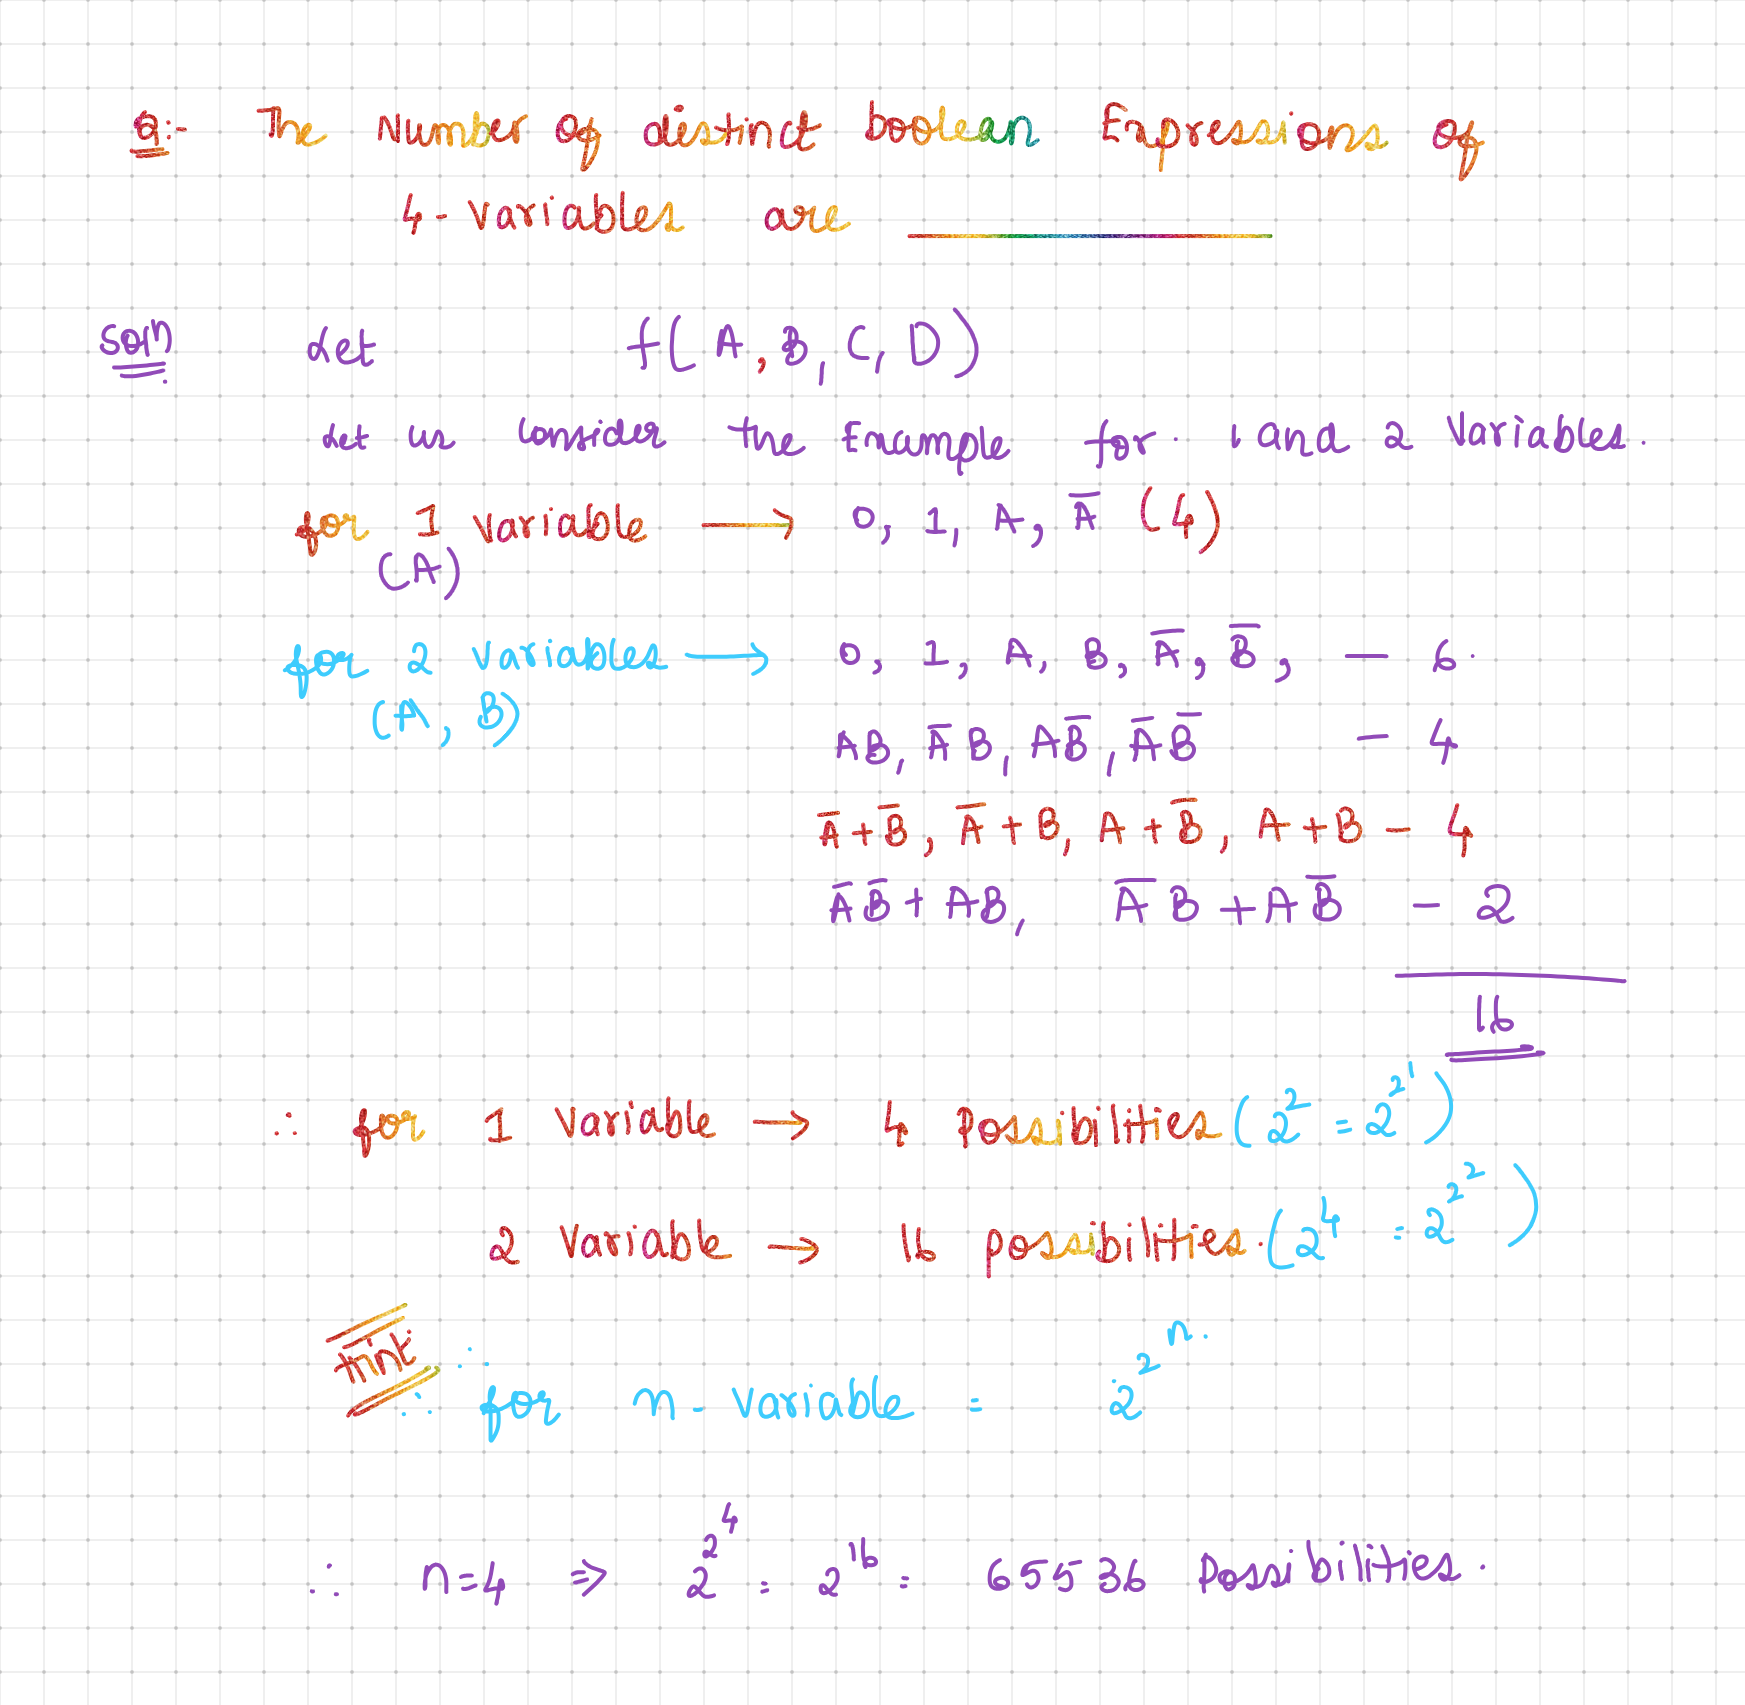 Q:- The Number of distinct boolean Expressions of
4-Variables are ________
Soln Let f(A, B, C, D)
Let us Consider the Example for 1 and 2 Variables.
for 1 Variable → 0, 1, A, A̅ (4)
(A)
for 2 Variables → 0, 1, A, B, A̅, B̅, — 6.
(A, B)
AB, A̅B, AB̅, A̅B̅ — 4
A̅+B̅, A̅+B, A+B̅, A+B — 4
A̅B̅+AB, A̅B+AB̅ — 2
16
∴ for 1 Variable → 4 Possibilities (2² = 2^2^1)
2 Variable → 16 possibilities. (2⁴ = 2^2^2)
Hint ∴ for n-Variable = 2^2^n.
∴ n=4 ⇒ 2^2^4 = 2^16 = 65536 Possibilities.